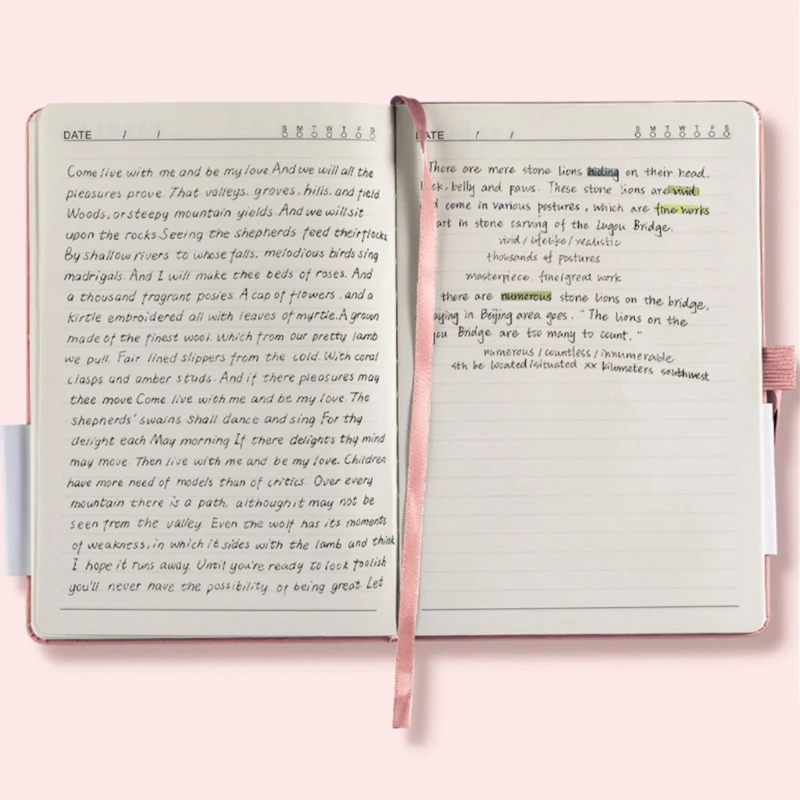 DATE / / S M T W T F S
Come live with me and be my love.And we will all the
pleasures prove. That valleys. groves. hills. and field
Woods, or steepy mountain yields. And we will sit
upon the rocks.Seeing the shepherds feed their flocks
By shallow rivers to whose falls, melodious birds sing
madrigals. And I will make thee beds of roses. And
a thousand fragrant posies. A cap of flowers. and a
kirtle embroidered all with leaves of myrtle.A gown
made of the finest wool. Which from our pretty lamb
we pull. Fair lined slippers from the cold. With coral
clasps and amber studs. And if there pleasures may
thee move Come live with me and be my love. The
shepherds' swains shall dance and sing For thy
delight each May morning If there delights thy mind
may move. Then live with me and be my love. Children
have more need of models than of critics. Over every
mountain there is a path, although it may not be
seen from the valley. Even the wolf has its moments
of weakness, in which it sides with the lamb and think
I hope it runs away. Until you're ready to look foolish
you'll never have the possibility of being great Let
DATE / / S M T W T F S
There are more stone lions hiding on their head.
ck, belly and paws. These stone lions are vivid
d come in various postures, which are fine works
art in stone carving of the Lugou Bridge.
vivid / lifelike / realistic
thousands of postures
masterpiece. fine/great work
there are numerous stone lions on the bridge,
aying in Beijing area goes. "The lions on the
ou Bridge are too many to count."
numerous / countless / innumerable
sth be located/situated xx kilometers southwest